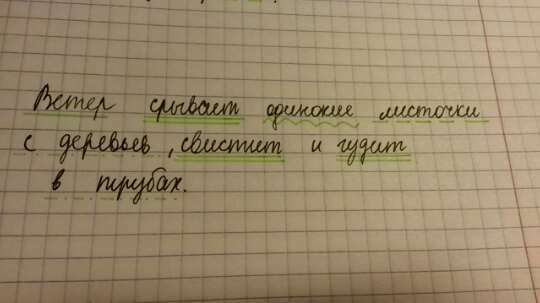 Ветер срывает одинокие листочки
с деревьев, свистит и гудит
в трубах.